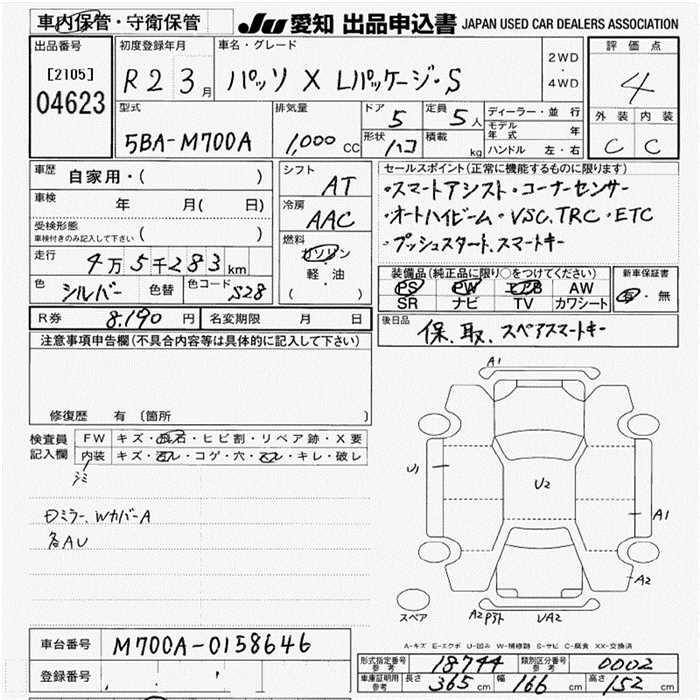 車内保管・守衛保管 JU 愛知 出品申込書 JAPAN USED CAR DEALERS ASSOCIATION
出品番号 初度登録年月 車名・グレード 評価点
[2105] R2 3月 パッソ X Lパッケージ・S 2WD・4WD 4
04623 型式 排気量 ドア 定員 ディーラー・並行 外装 内装
5BA-M700A 1,000cc 5 5人 モデル年式 年 C C
形状 ハコ 積載 kg ハンドル 左・右
車歴 自家用・( ) シフト AT セールスポイント(正常に機能するものに限ります)
車検 年 月( 日) 冷房 AAC ・スマートアシスト・コーナーセンサー
受検形態 ・オートハイビーム・VSC.TRC・ETC
車検付きのみ記入して下さい( ) 燃料 ガソリン ・プッシュスタート、スマートキー
走行 4万5千283km ・軽・油 装備品(純正品に限り○をつけてください) 新車保証書
色 シルバー 色替 色コード S28 ( ) PS PW エアB AW 有・無
SR ナビ TV カワシート
R券 8,190円 名変期限 月 日 後日品 保、取、スペアスマートキー
注意事項申告欄(不具合内容等は具体的に記入して下さい)
修復歴 有 〔箇所 〕
検査員 FW キズ・飛石・ヒビ割・リペア跡・X要
記入欄 内装 キズ・コゲ・穴・キレ・破レ
シミ
ミラー、WカバーA
各AU
A1
U1
U2
A1
A2
スペア
A2
UA2
A-キズ E-エクボ U-凹み W-補修跡 S-サビ C-腐食 XX-交換済
車台番号 M700A-0158646
形式指定番号 参考 18744 類別区分番号 参考 0002
登録番号 車庫証明用 参考 長さ 365cm 幅 166cm 高さ 152cm